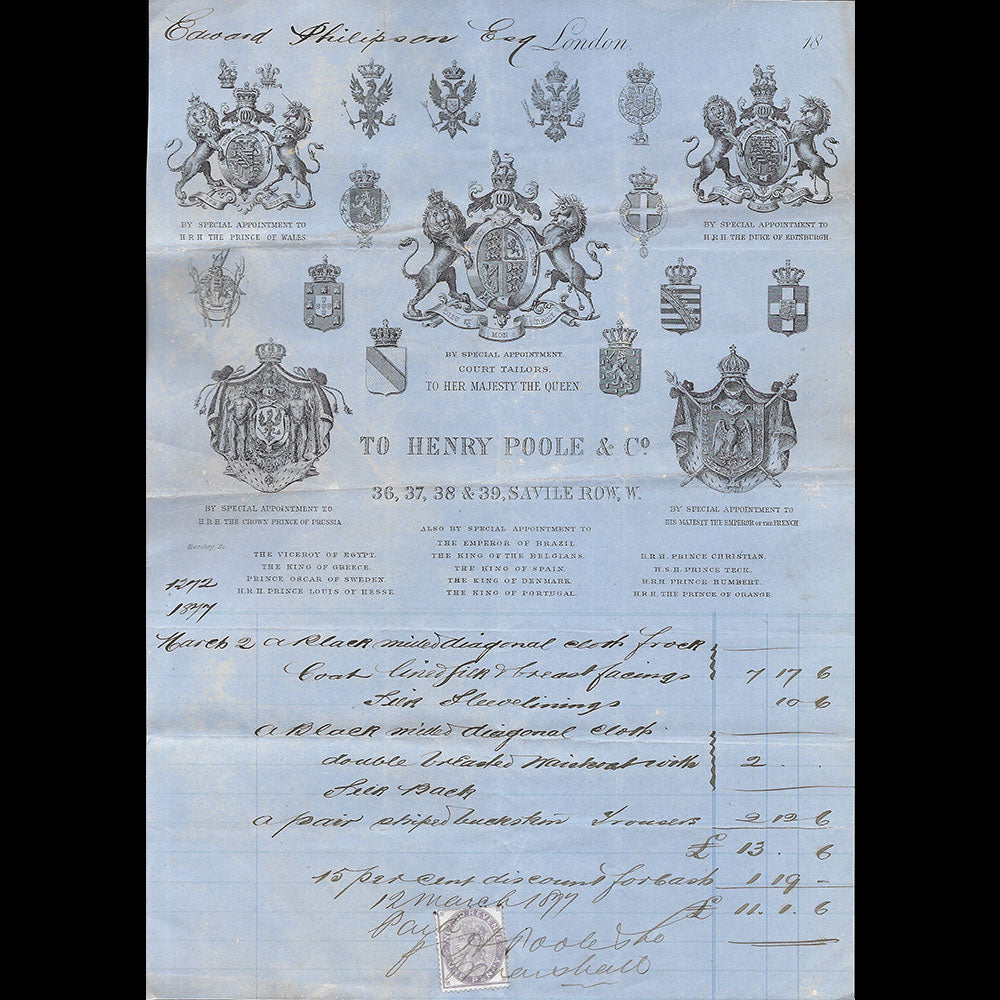 Edward Philipson Esq London. 18
BY SPECIAL APPOINTMENT TO
H.R.H THE PRINCE OF WALES
BY SPECIAL APPOINTMENT TO
H.R.H THE DUKE OF EDINBURGH.
DIEU ET MON DROIT
BY SPECIAL APPOINTMENT.
COURT TAILORS.
TO HER MAJESTY THE QUEEN.
TO HENRY POOLE & Co.
36, 37, 38 & 39, SAVILE ROW, W.
BY SPECIAL APPOINTMENT TO
H.R.H THE CROWN PRINCE OF PRUSSIA
BY SPECIAL APPOINTMENT TO
HIS MAJESTY THE EMPEROR OF THE FRENCH
ALSO BY SPECIAL APPOINTMENT TO
THE EMPEROR OF BRAZIL.
THE KING OF THE BELGIANS.
THE KING OF SPAIN.
THE KING OF DENMARK.
THE KING OF PORTUGAL.
Barclay Sc
THE VICEROY OF EGYPT.
THE KING OF GREECE.
PRINCE OSCAR OF SWEDEN.
H.R.H PRINCE LOUIS OF HESSE.
H.R.H. PRINCE CHRISTIAN.
H.S.H. PRINCE TECK.
H.R.H. PRINCE HUMBERT.
H.R.H. THE PRINCE OF ORANGE.
1272
1877
March 2 a Black milled diagonal cloth frock
Coat lined silk & breast facings 7 17 6
Silk Sleevelinings 10 6
a Black milled diagonal cloth
double breasted Waistcoat with 2 . .
Silk Back
a pair striped buckskin Trousers 2 12 6
£ 13 . 6
15 per cent discount for Cash 1 19 –
12 March 1877 £ 11. 1. 6
H Poole & Co
Marshall